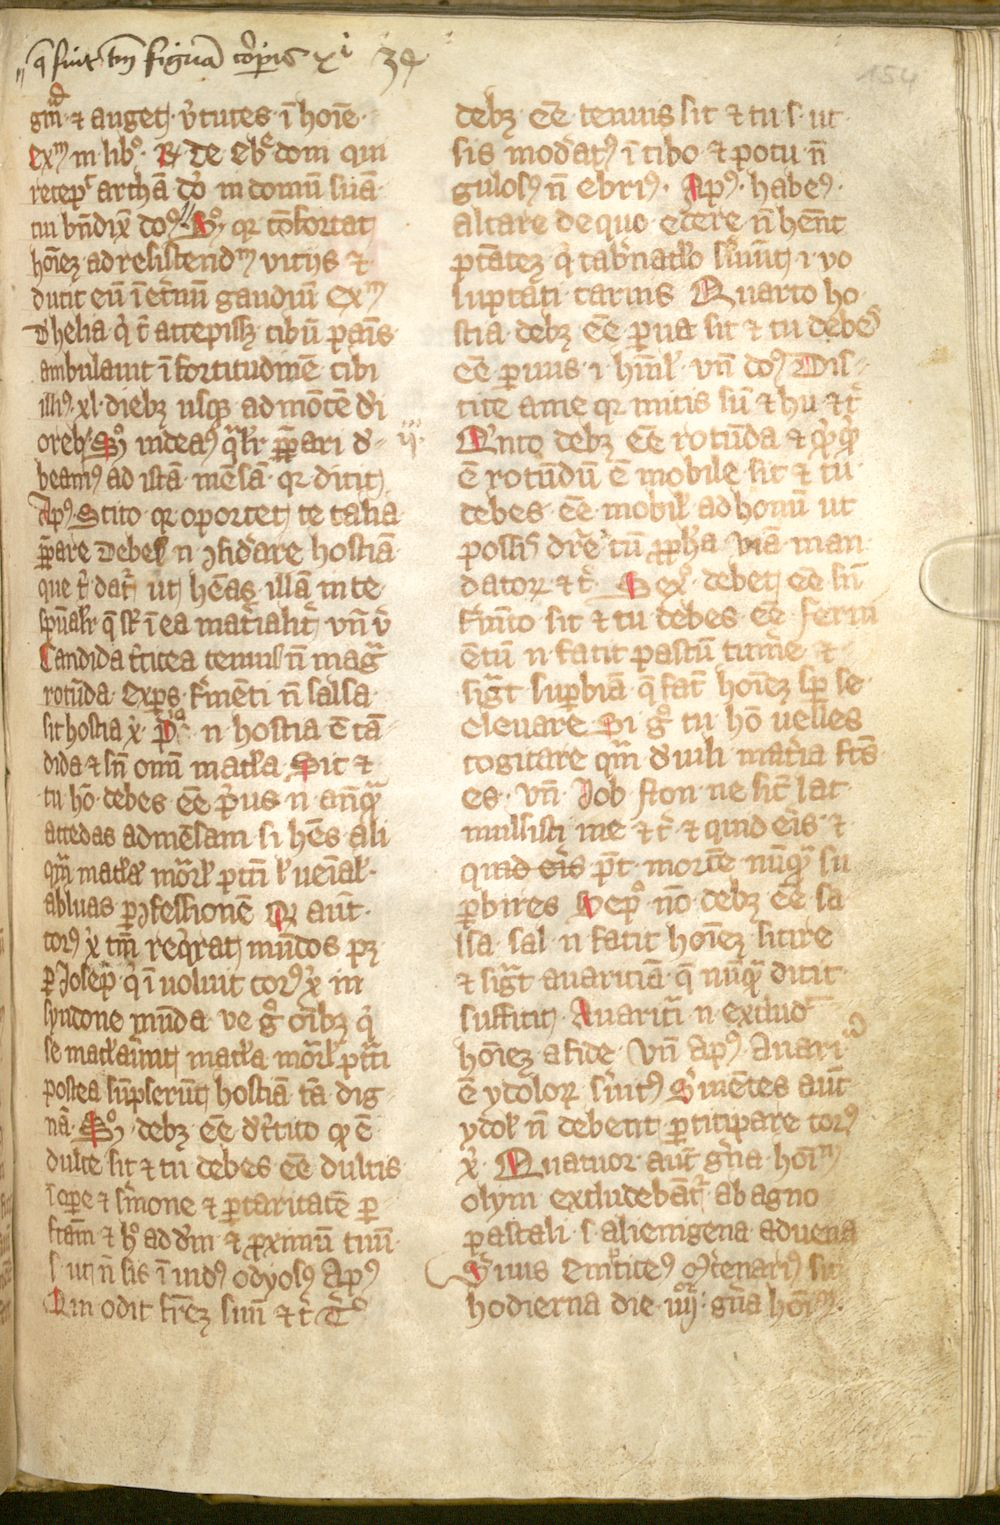 q̄ fuit tm̄ figura corꝑis xi 34
154
gm̄ ⁊ auget v̓tutes ī hoīe
exm̄ in libº R̷ de ebrͤdom qui
recep͛ archā do̓ in domū suā
nu bn̄dix̄ doꝰ Sº qr ꝯfortat
hoīez ad resistendm̄ vitijs ⁊
ducit eū ī et̓nū gaudiū Exm̄
d̓ helia q̓ t̄ accepissꝫ cibū panis
ambulauit ī fortitudinē cibi
illiꝰ xl diebꝫ usqꝫ ad mōtē d̓i
oreb Sº uideaꝰ q̄lr̄ p̄ꝑari d̓
beamꝰ ad istā mēsā qr dicit
Apꝰ Scito qr oportet te talia
p̄ꝑare debeꝰ n ꝯsid̓are hostiā
que t̓ dat̄ ut hēas illā in te
spūalr̄ q̄ sr̄ ī ea mat̓ialit̓ vn̄ v̓
Candida t̓ticea tenuis n̄ mag̓
rotūda expers f̓mēti n̄ salsa
sit hostia x̓ pª n hostia ē cā
dida ⁊ sn̄ omi macl̓a Sic ⁊
tu hō debes eē p̓us n an̄qꝫ
accedas ad mēsam si hēs ali
qm̄ macl̓ mōrl̓ pcti l̓ ueīal̓
abluas ꝑ ꝯfessionē Q aut̄
corꝰ x̓ tm̄ req̓rat mūdos pꝫ
ꝑ Josep̄ q̓ īuoluit corꝰ x̓ in
syndone mūda ve gͦ oībꝫ q̓
se macl̓auerūt macl̓a mōrl̓ pcti
postea sūpserūt hostiā tā dig
nā Sº debꝫ eē d̓ t̓tico qꝫ ē
dulce sic ⁊ tu debes eē dulcis
ī oꝑe ⁊ s̓mone ⁊ ꝑ caritatē ꝑ
fcām ⁊ hº ad dm̄ ⁊ ꝓximū tuū
s ut n̄ sis ī uidꝰ odyosꝰ Apꝰ
Qui odit fr̄ez suū ⁊ t̓ Tº
debꝫ eē tenuis sic ⁊ tu s ut
sis mod̓atꝰ ī cibo ⁊ potu n̄
gulosꝰ n̄ ebriꝰ Apꝰ habeꝰ
altare de quo edere n̄ hēnt
ptātez q̓ tab̓nacl̓o s̓uiūt i vo
luptati carnis Quarto ho
stia debꝫ eē ꝑua sic ⁊ tu debes
eē ꝑuus i hūil̓ vn̄ doꝰ Dis
cite a me qr mitis sū ⁊ hu ⁊ t̓
iij Q̓nto debꝫ eē rotūda ⁊ q̓q̓
ē rotūdū ē mobile sic ⁊ tu
debes eē mobil̓ ad bonū ut
possis dr̄e cū ꝓph̄a viā man
datoꝝ ⁊ t̓ Sexº debet eē sn̄
f̓mto sic ⁊ tu debes eē ferm
ētū n facit pastū tum̓e ⁊
sig̓t suꝑbiā q̄ fac̄ hoīez sꝑ se
eleuare Si gͦ tu hō uelles
cogitare qm̄ d̓ uili mat̓ia fc̄s
es vn̄ Job ston ne sic̄ lac
mulsisti me ⁊ t̓ ⁊ quid eris ⁊
quid eris p̄t mortē nūqꝫ su
ꝑbires Sepº nō debꝫ eē sa
lsa sal n facit hoīez sitire
⁊ sig̓t auaritiā q̄ nūqꝫ dicit
sufficit Auariti n excludͭ
hoīez a fide Vn̄ Apꝰ auari
ē ydoloꝝ s̓uitꝰ S̓uiētes aut̄
ydol̓ n̄ debent ꝑticipare corꝰ
x̓ Quatuor aut̄ gn̄a hoīm
olym excludebāt̓ ab agno
pascali s alienigena aduena
S̓uus Emticeꝰ m̓cēnariꝰ sic
hodierna die iiijor gn̄a hoīm